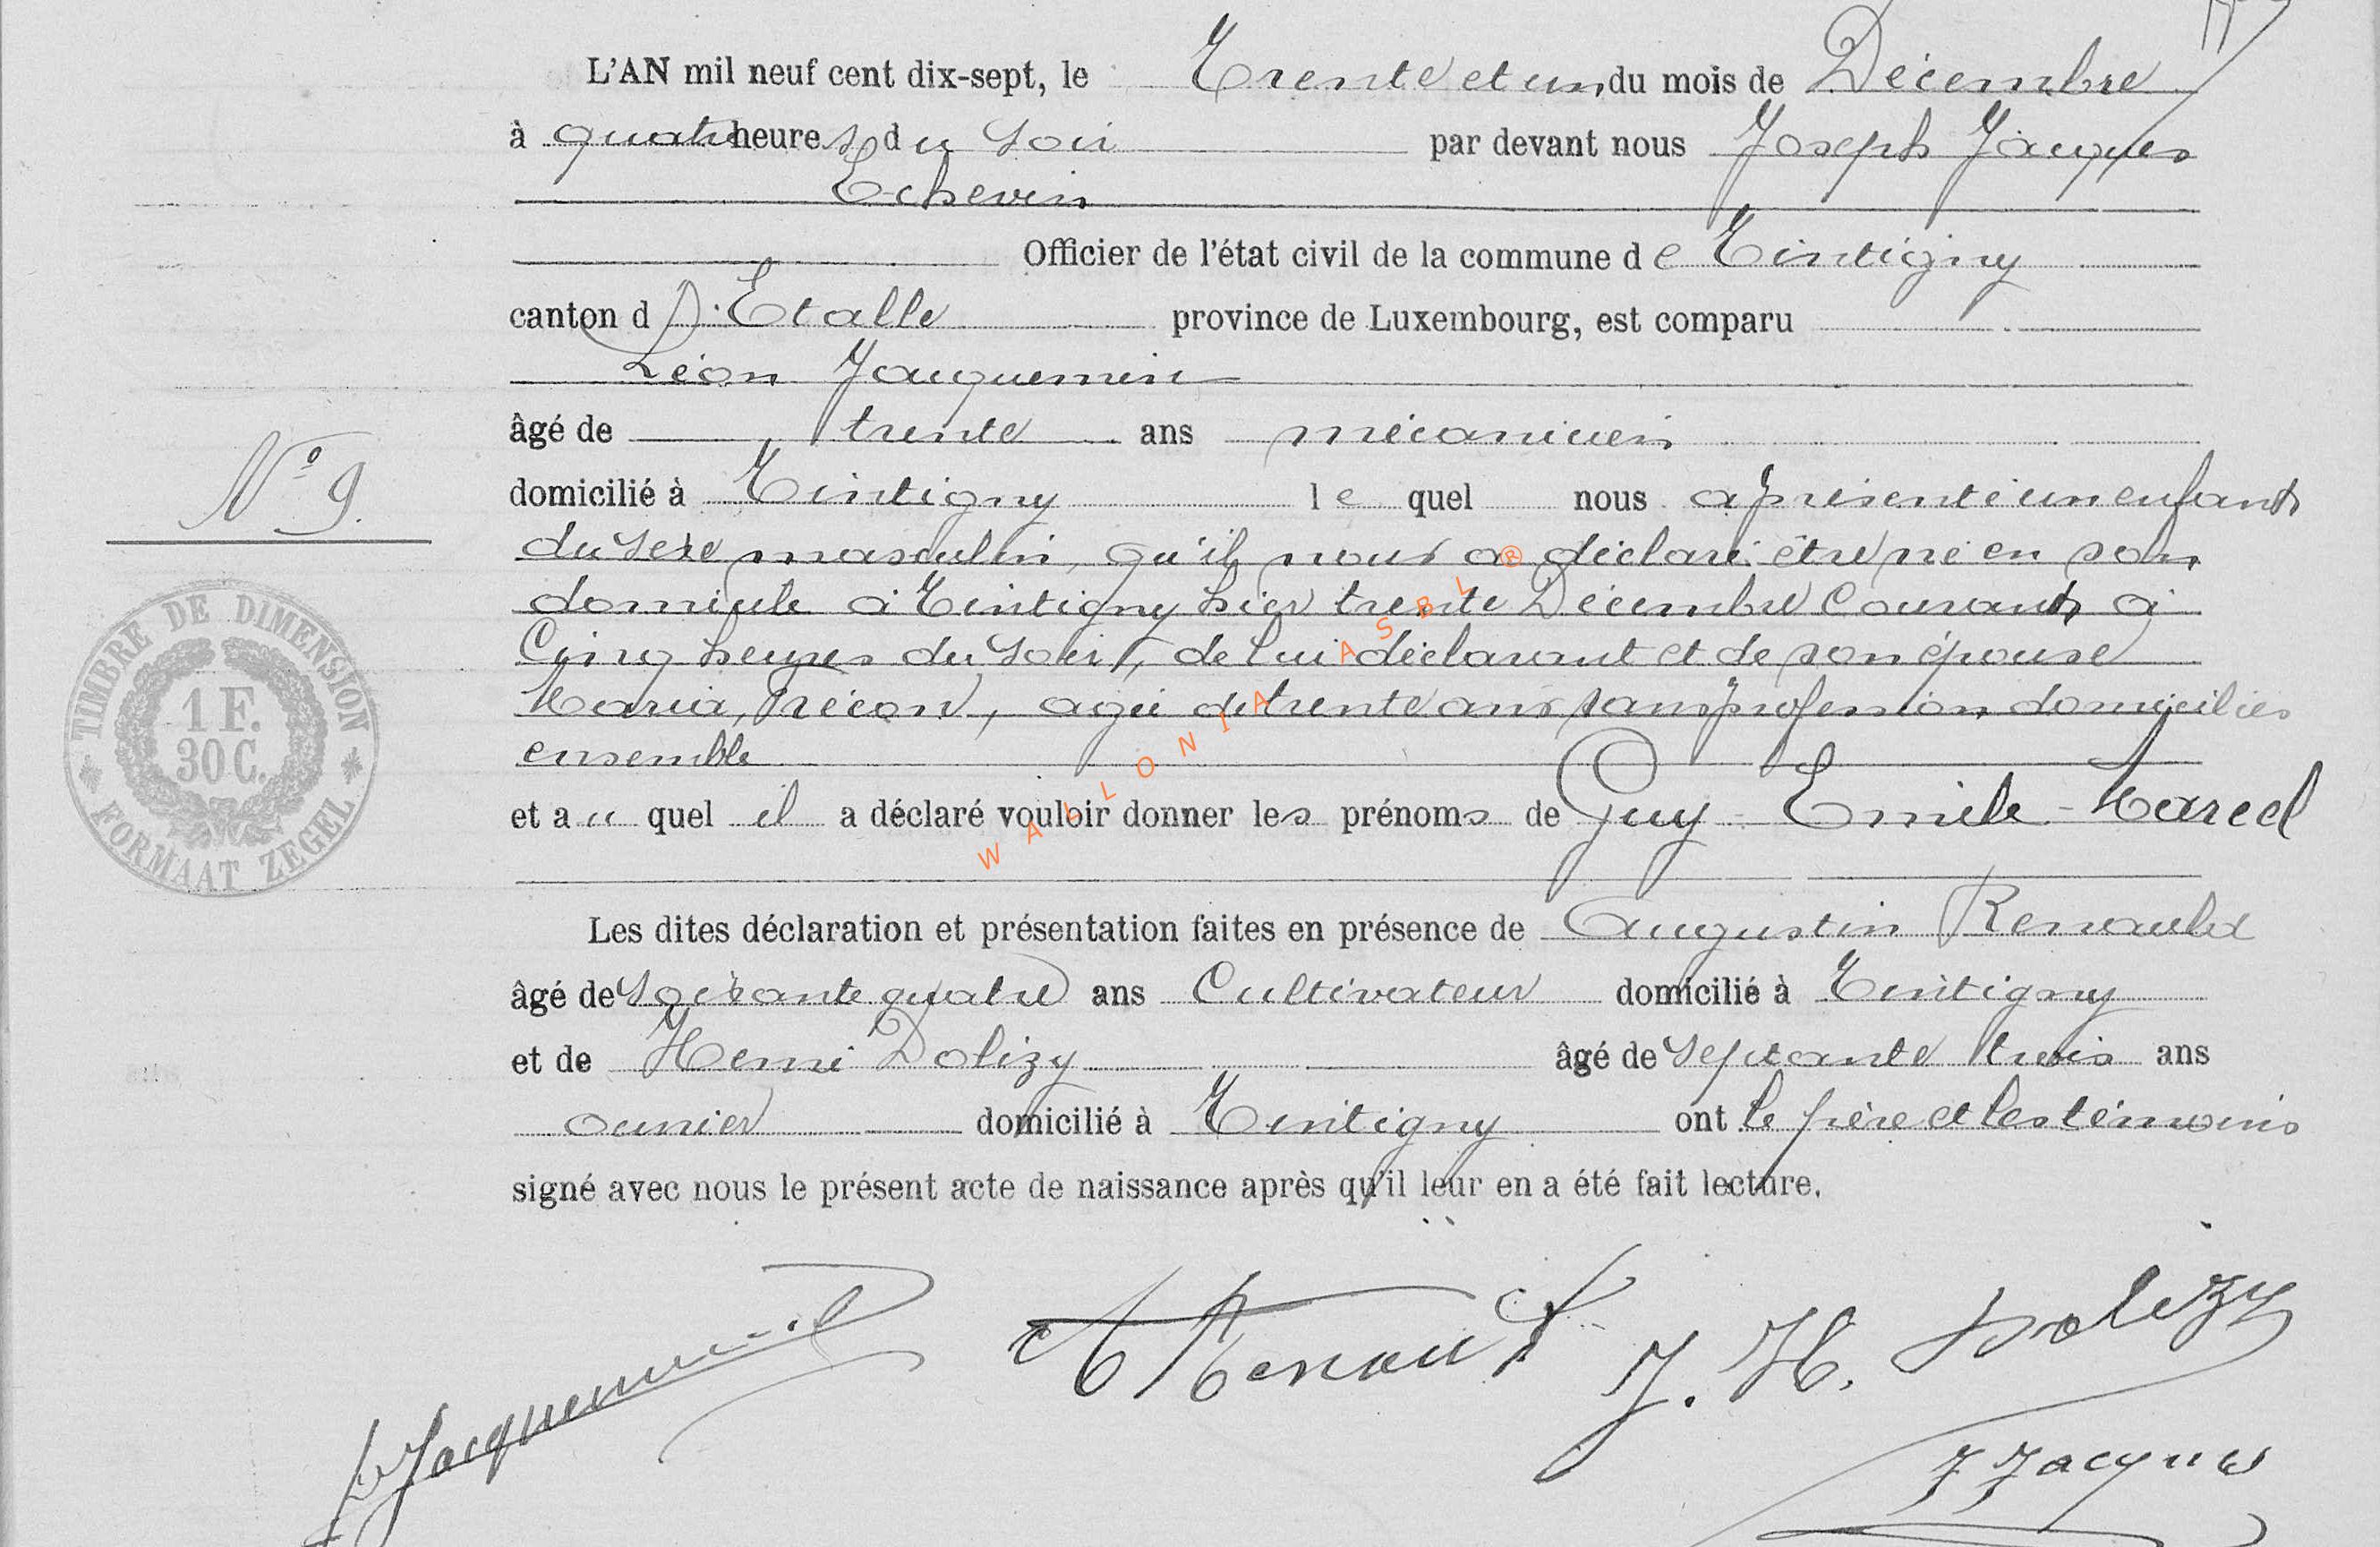 L'AN mil neuf cent dix-sept, le Trente et un du mois de Décembre
à quatre heures du Soir par devant nous Joseph Jacques
Echevin
Officier de l'état civil de la commune de Tintigny
canton d D'Etalle province de Luxembourg, est comparu
Léon Jacquemin
âgé de trente ans mécanicien
domicilié à Tintigny le quel nous a présenté un enfant
N° 9.
du sexe masculin, qu'il nous a déclaré être né en son
domicile à Tintigny hier trente Décembre Courant à
Cinq heures du Soir, de lui déclarant et de son épouse
Maria, agée de trente ans sans profession domiciliés
ensemble
et au quel il a déclaré vouloir donner les prénoms de Guy - Emile - Marcel
TIMBRE DE DIMENSION
1 F.
30 C.
FORMAAT ZEGEL
WALLONIA ASBL ®
Les dites déclaration et présentation faites en présence de Augustin Renauld
âgé de Soixante quatre ans Cultivateur domicilié à Tintigny
et de Henri Dolizy âgé de septante trois ans
ouvrier domicilié à Tintigny ont le père et les témoins
signé avec nous le présent acte de naissance après qu'il leur en a été fait lecture.
LJacquemin
A Renault
J. H. Dolizy
J Jacques